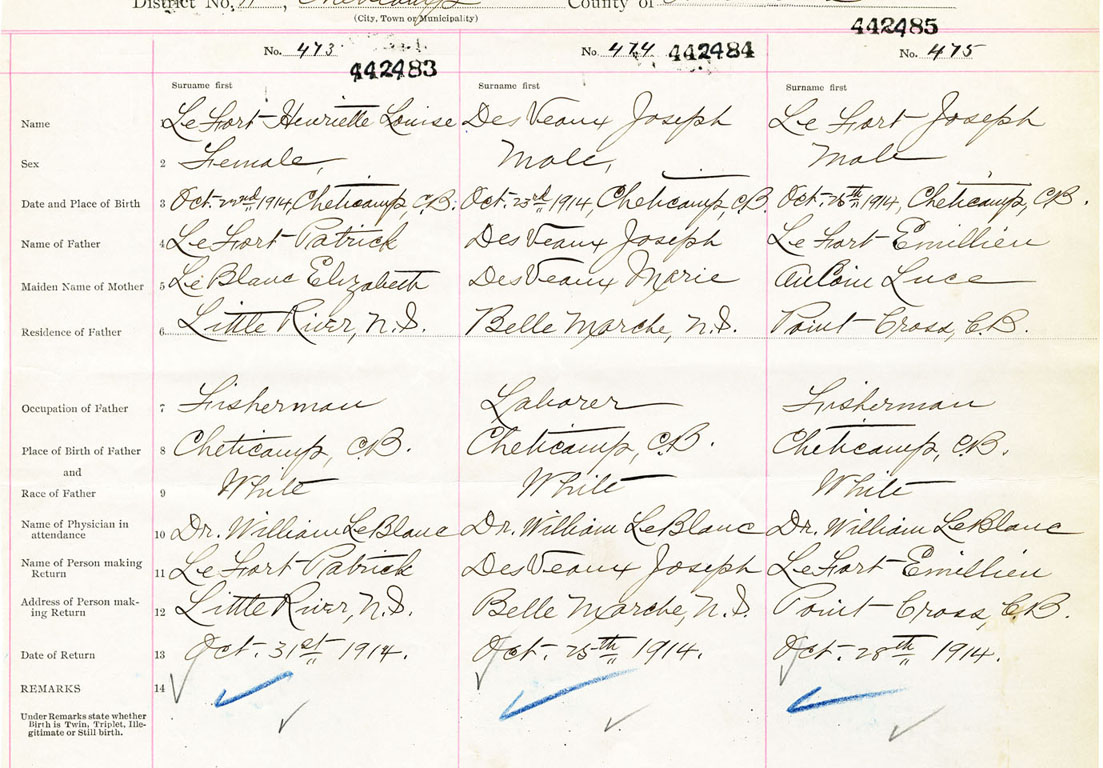 District No. 11, Cheticamp County of
(City, Town or Municipality)
442485
No. 473 No. 474 442484 No. 475
442483
Surname first Surname first Surname first
Name 1 Le Fort Henriette Louise DesVeaux Joseph Le Fort Joseph
Sex 2 Female, Male, Male
Date and Place of Birth 3 Oct. 22nd 1914, Cheticamp, C.B. Oct. 23rd 1914, Cheticamp, C.B. Oct. 26th 1914, Cheticamp, C.B.
Name of Father 4 Le Fort Patrick DesVeaux Joseph Le Fort Emillien
Maiden Name of Mother 5 Le Blanc Elizabeth DesVeaux Marie Aucoin Luce
Residence of Father 6 Little River, N.S. Belle Marche, N.S. Point Cross, C.B.
Occupation of Father 7 Fisherman Laborer Fisherman
Place of Birth of Father 8 Cheticamp, C.B. Cheticamp, C.B. Cheticamp, C.B.
and
Race of Father 9 White White White
Name of Physician in
attendance 10 Dr. William LeBlanc Dr. William LeBlanc Dr. William LeBlanc
Name of Person making
Return 11 Le Fort Patrick DesVeaux Joseph Le Fort Emillien
Address of Person mak-
ing Return 12 Little River, N.S. Belle Marche, N.S. Point Cross, C.B.
Date of Return 13 Oct. 31st 1914. Oct. 25th 1914. Oct. 28th 1914.
REMARKS 14
Under Remarks state whether
Birth is Twin, Triplet, Ille-
gitimate or Still birth.